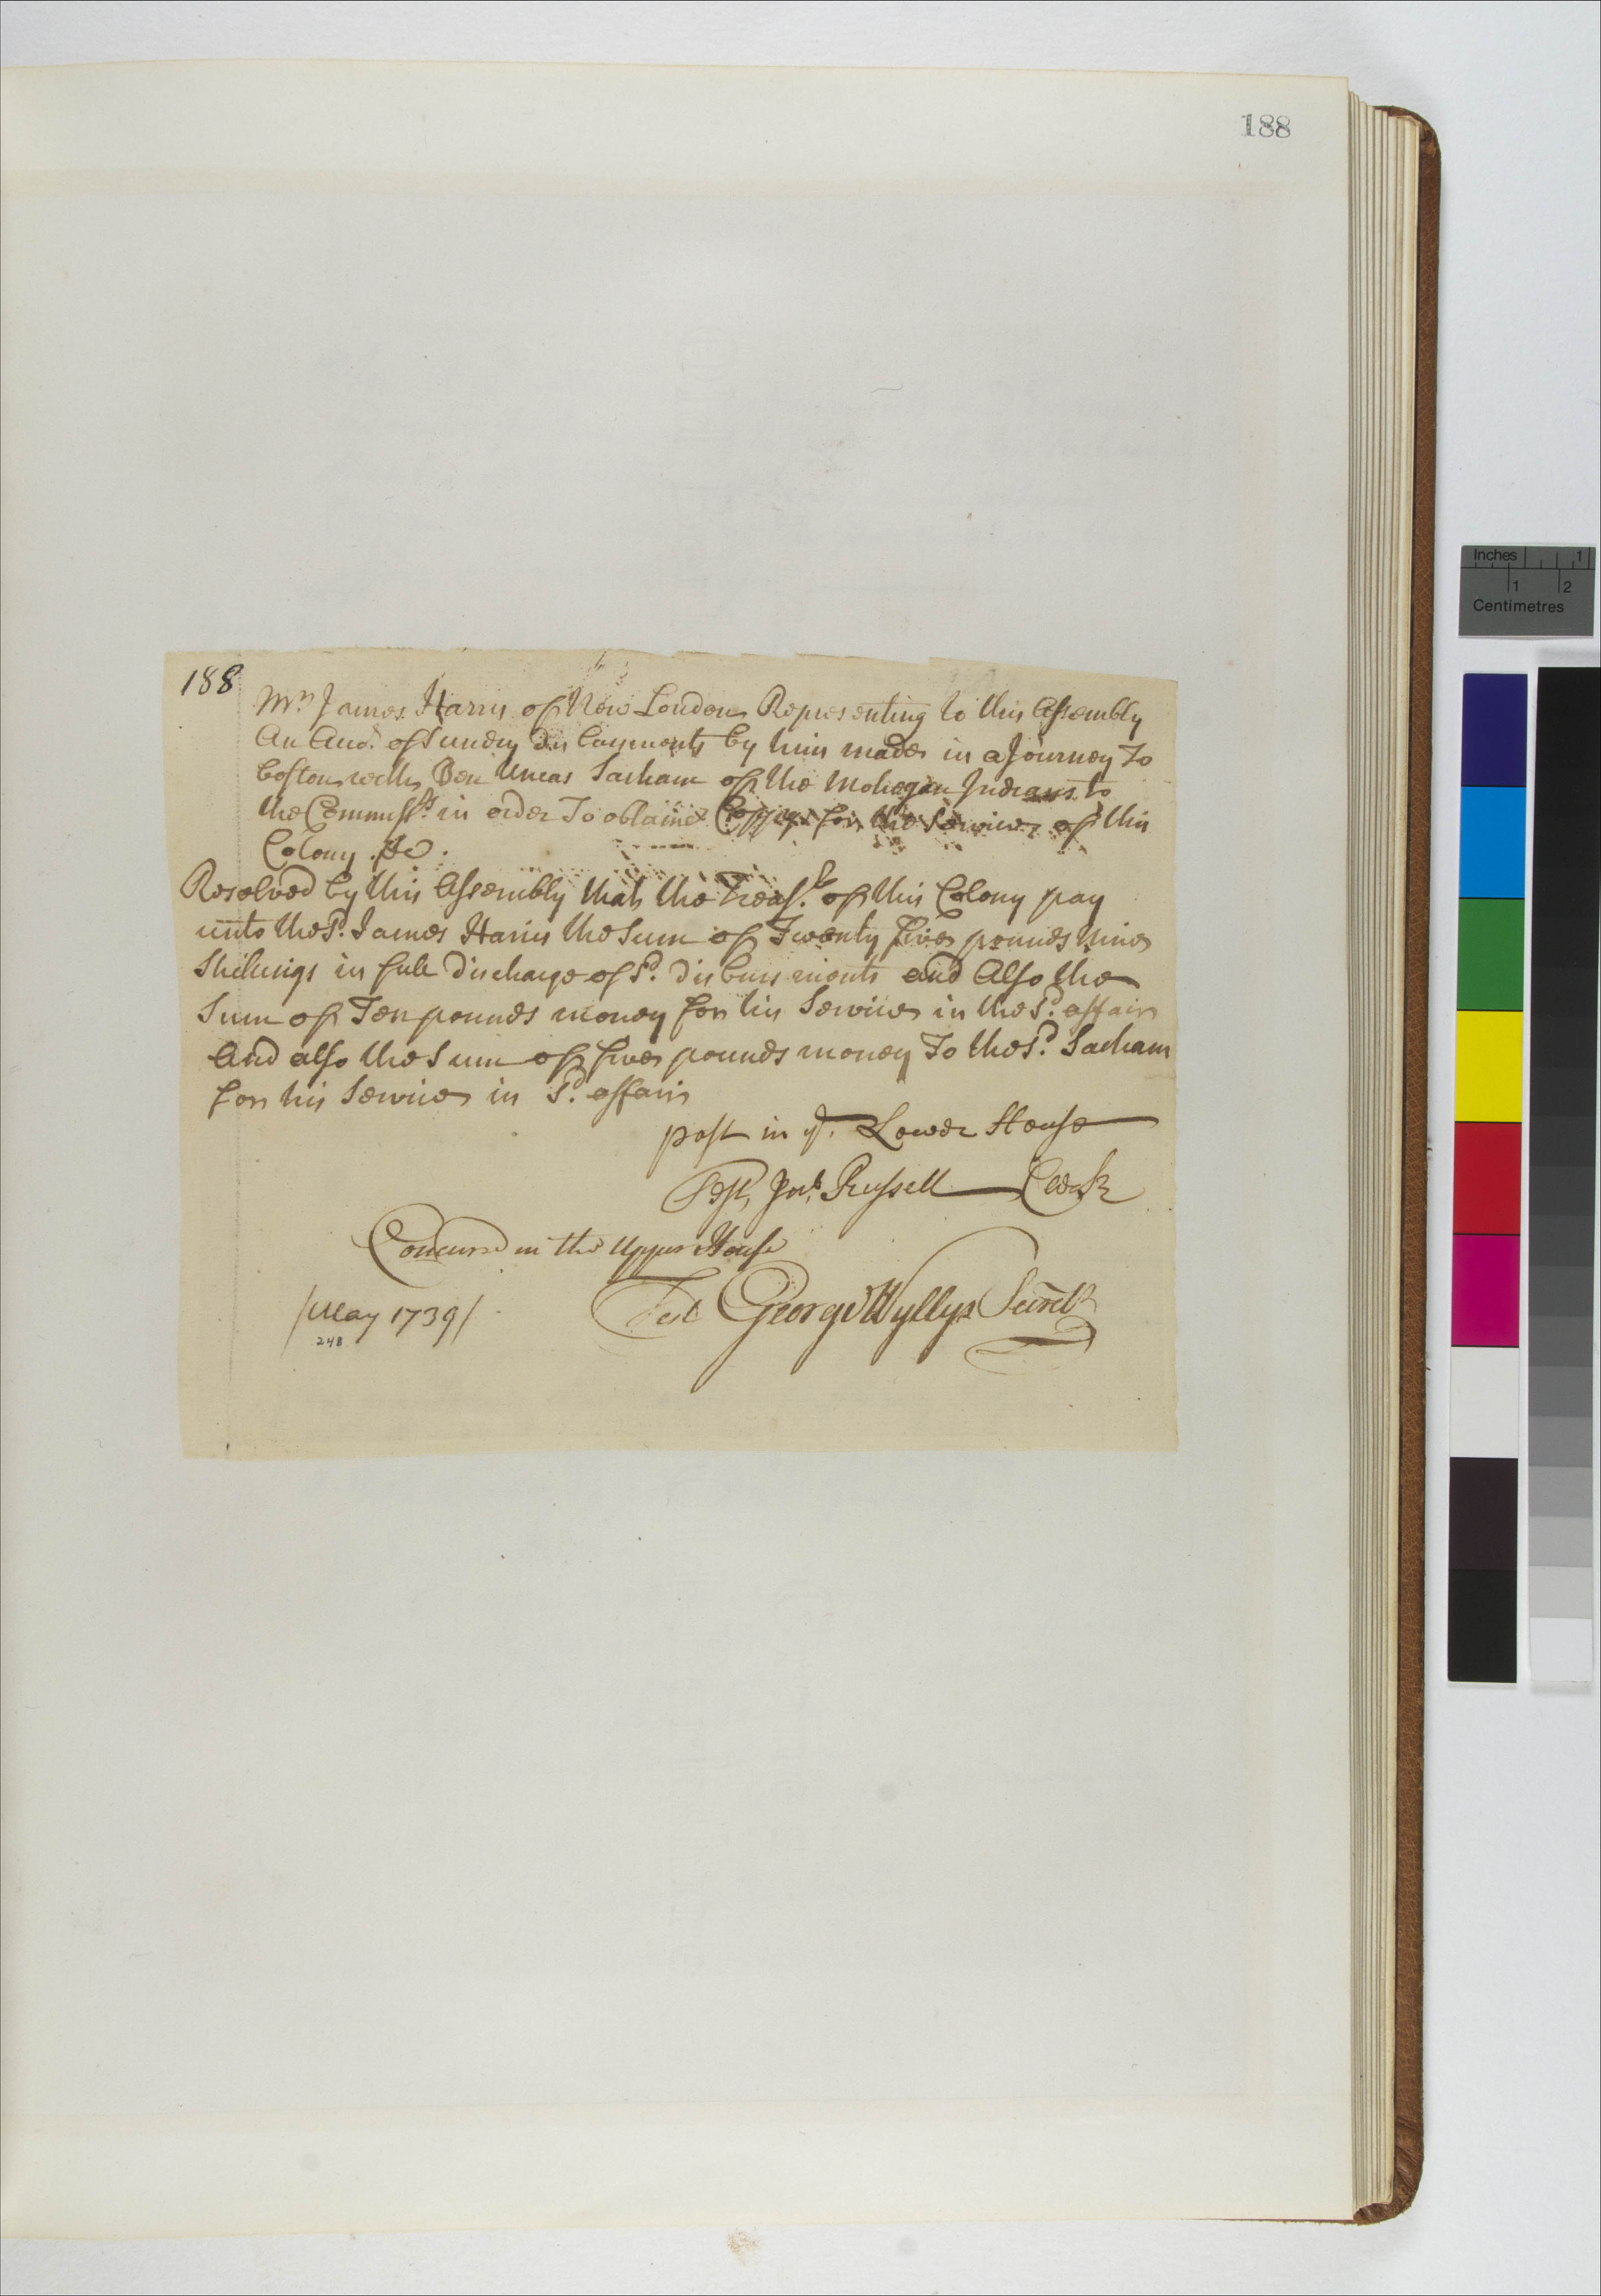 188
188
Mr. James Harris of New London Representing to this Assembly
An Acct. of Sundry disbursments by him made in a Journey To
boston with Ben Uncas Sacham of the Mohegan Indians to
the Commissrs. in order To obtaine Coppys for the Service of this
Colony &c.
Resolved by this Assembly that the Treasr. of this Colony pay
unto the sd. James Harris the Sum of Twenty five pounds nine
Shillings in full discharge of sd. disbursments and Also the
Sum of Ten pounds money for his Service in the sd. affair
And also the Sum of five pounds money To the sd. Sacham
for his Service in sd. affair
past in ye. Lower House
Test, Jno. Russell Clerk
Concurrd in the Upper House
Test George Wyllys Secretr
/May 1739/
248
Inches 1
1 2
Centimetres